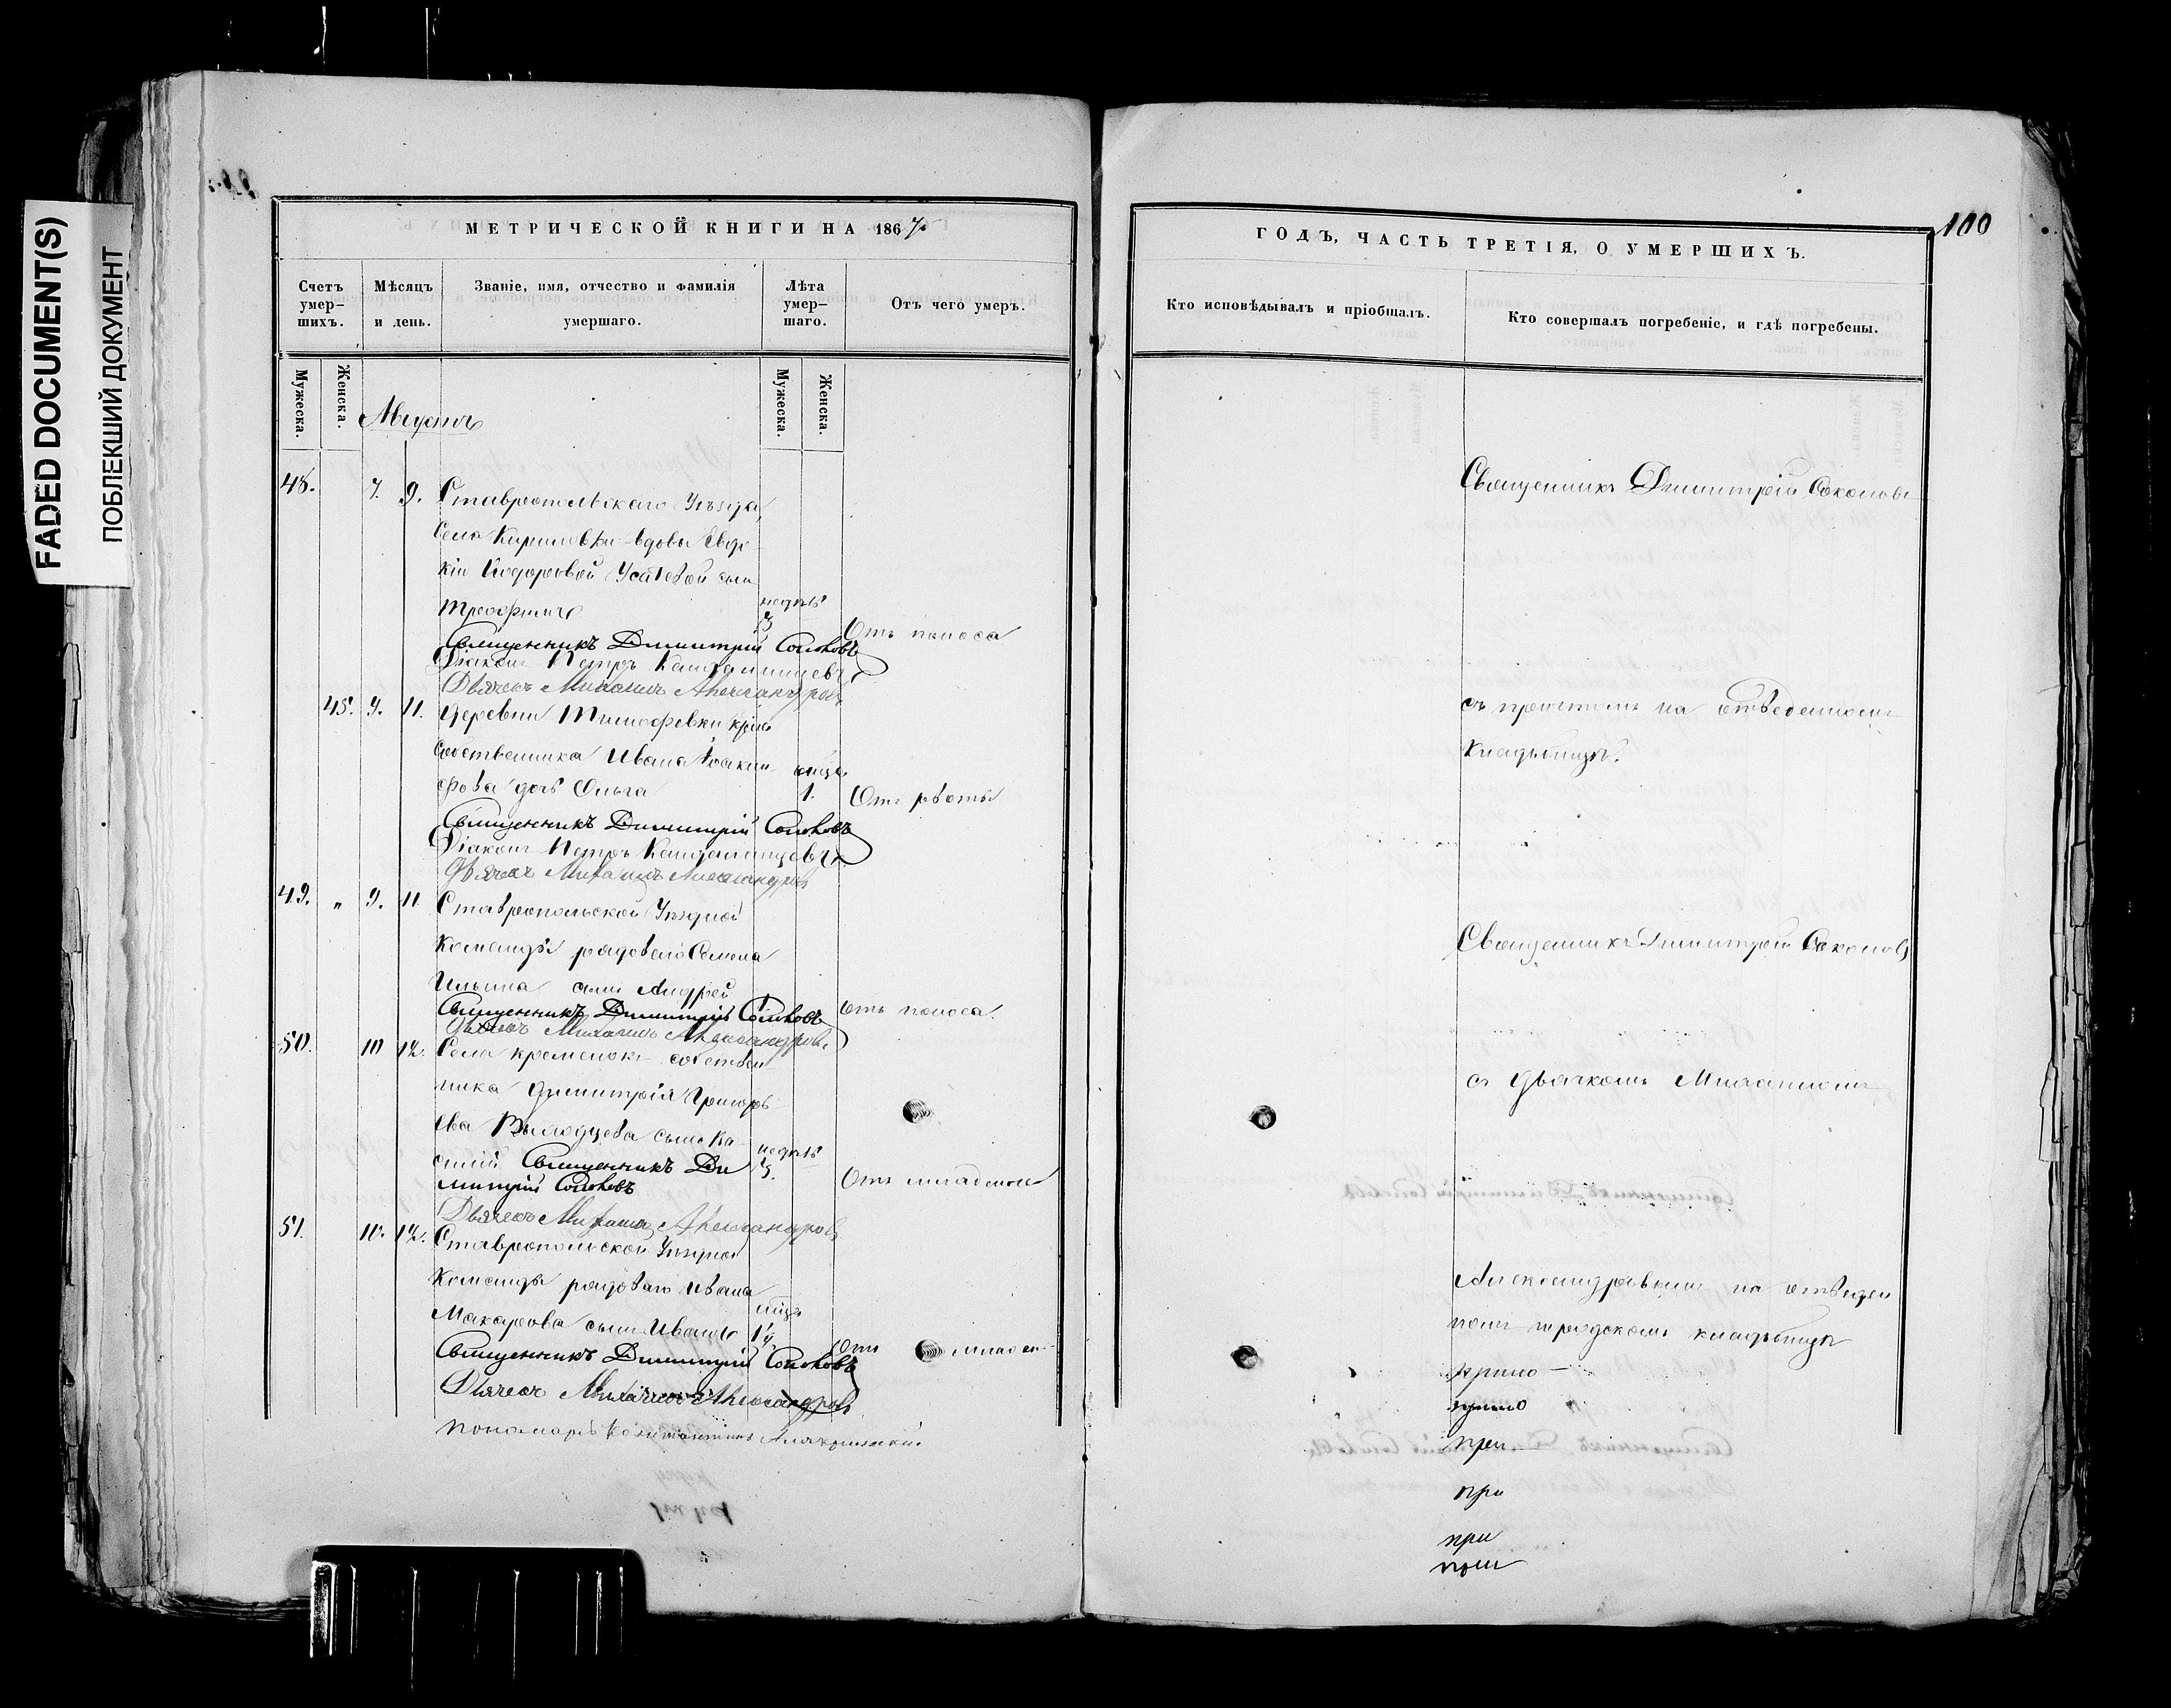 FADED DOCUMENT(S)
ПОБЛЕКШИЙ ДОКУМЕНТ
МЕТРИЧЕСКОЙ КНИГИ НА 1867.
Счетъ умер–шихъ.
Мѣсяцъ и день.
Званіе, имя, отчество и фамилія умершаго.
Лѣта умер–шаго.
Отъ чего умеръ.
Мужеска.
Женска.
Мужеска.
Женска.
Августъ
48. 7. 9. Ставропольскаго Уѣзда,
Села Кириловки вдовы Евдо
кіи Ѳедоровой Усачевой сынъ
Трофимъ недѣль 3 Отъ поноса
Священникъ Димитрій Соколовъ
Діаконъ Петръ
Дьячекъ Михаилъ Александровъ
45. 9. 11. Деревни Тимофѣвки крѣс
собственника Ивана
фова дочь Ольга 1. Отъ рвоты
Священникъ Димитрій Соколовъ
Діаконъ Петръ
Дьячекъ Михаилъ Александровъ
49. „ 9. 11 Ставропольской Уѣздной
Команды рядоваго Семена
Ильина сынъ Андрей
Священникъ Димитрій Соколовъ Отъ поноса.
Дьячекъ Михаилъ Александровъ
50. 10 12. Села Кременокъ собствен
ника Димитрія Григорь
ева сынъ Ва
силій недѣль 3.
Священникъ Ди
митрій Соколовъ Отъ младенч
Дьячекъ Михаилъ Александровъ
51. 10. 12. Ставропольской Уѣздной
Команды рядоваго Ивана
Макарова сынъ Иванъ
Священникъ Димитрій Соколовъ Отъ младен
Дьячекъ Михаилъ Александровъ
Пономарь Константинъ
ГОДЪ, ЧАСТЬ ТРЕТІЯ, О УМЕРШИХЪ.
100
Кто исповѣдывалъ и пріобщалъ.
Кто совершалъ погребеніе, и гдѣ погребены.
Священникъ Димитрій Соколовъ
съ причтомъ на отведенномъ
кладбищѣ.
Священникъ Димитрій Соколовъ
съ дьячкомъ Михаиломъ
Александровымъ на отведен
номъ городскомъ кладбищѣ
при
при
при